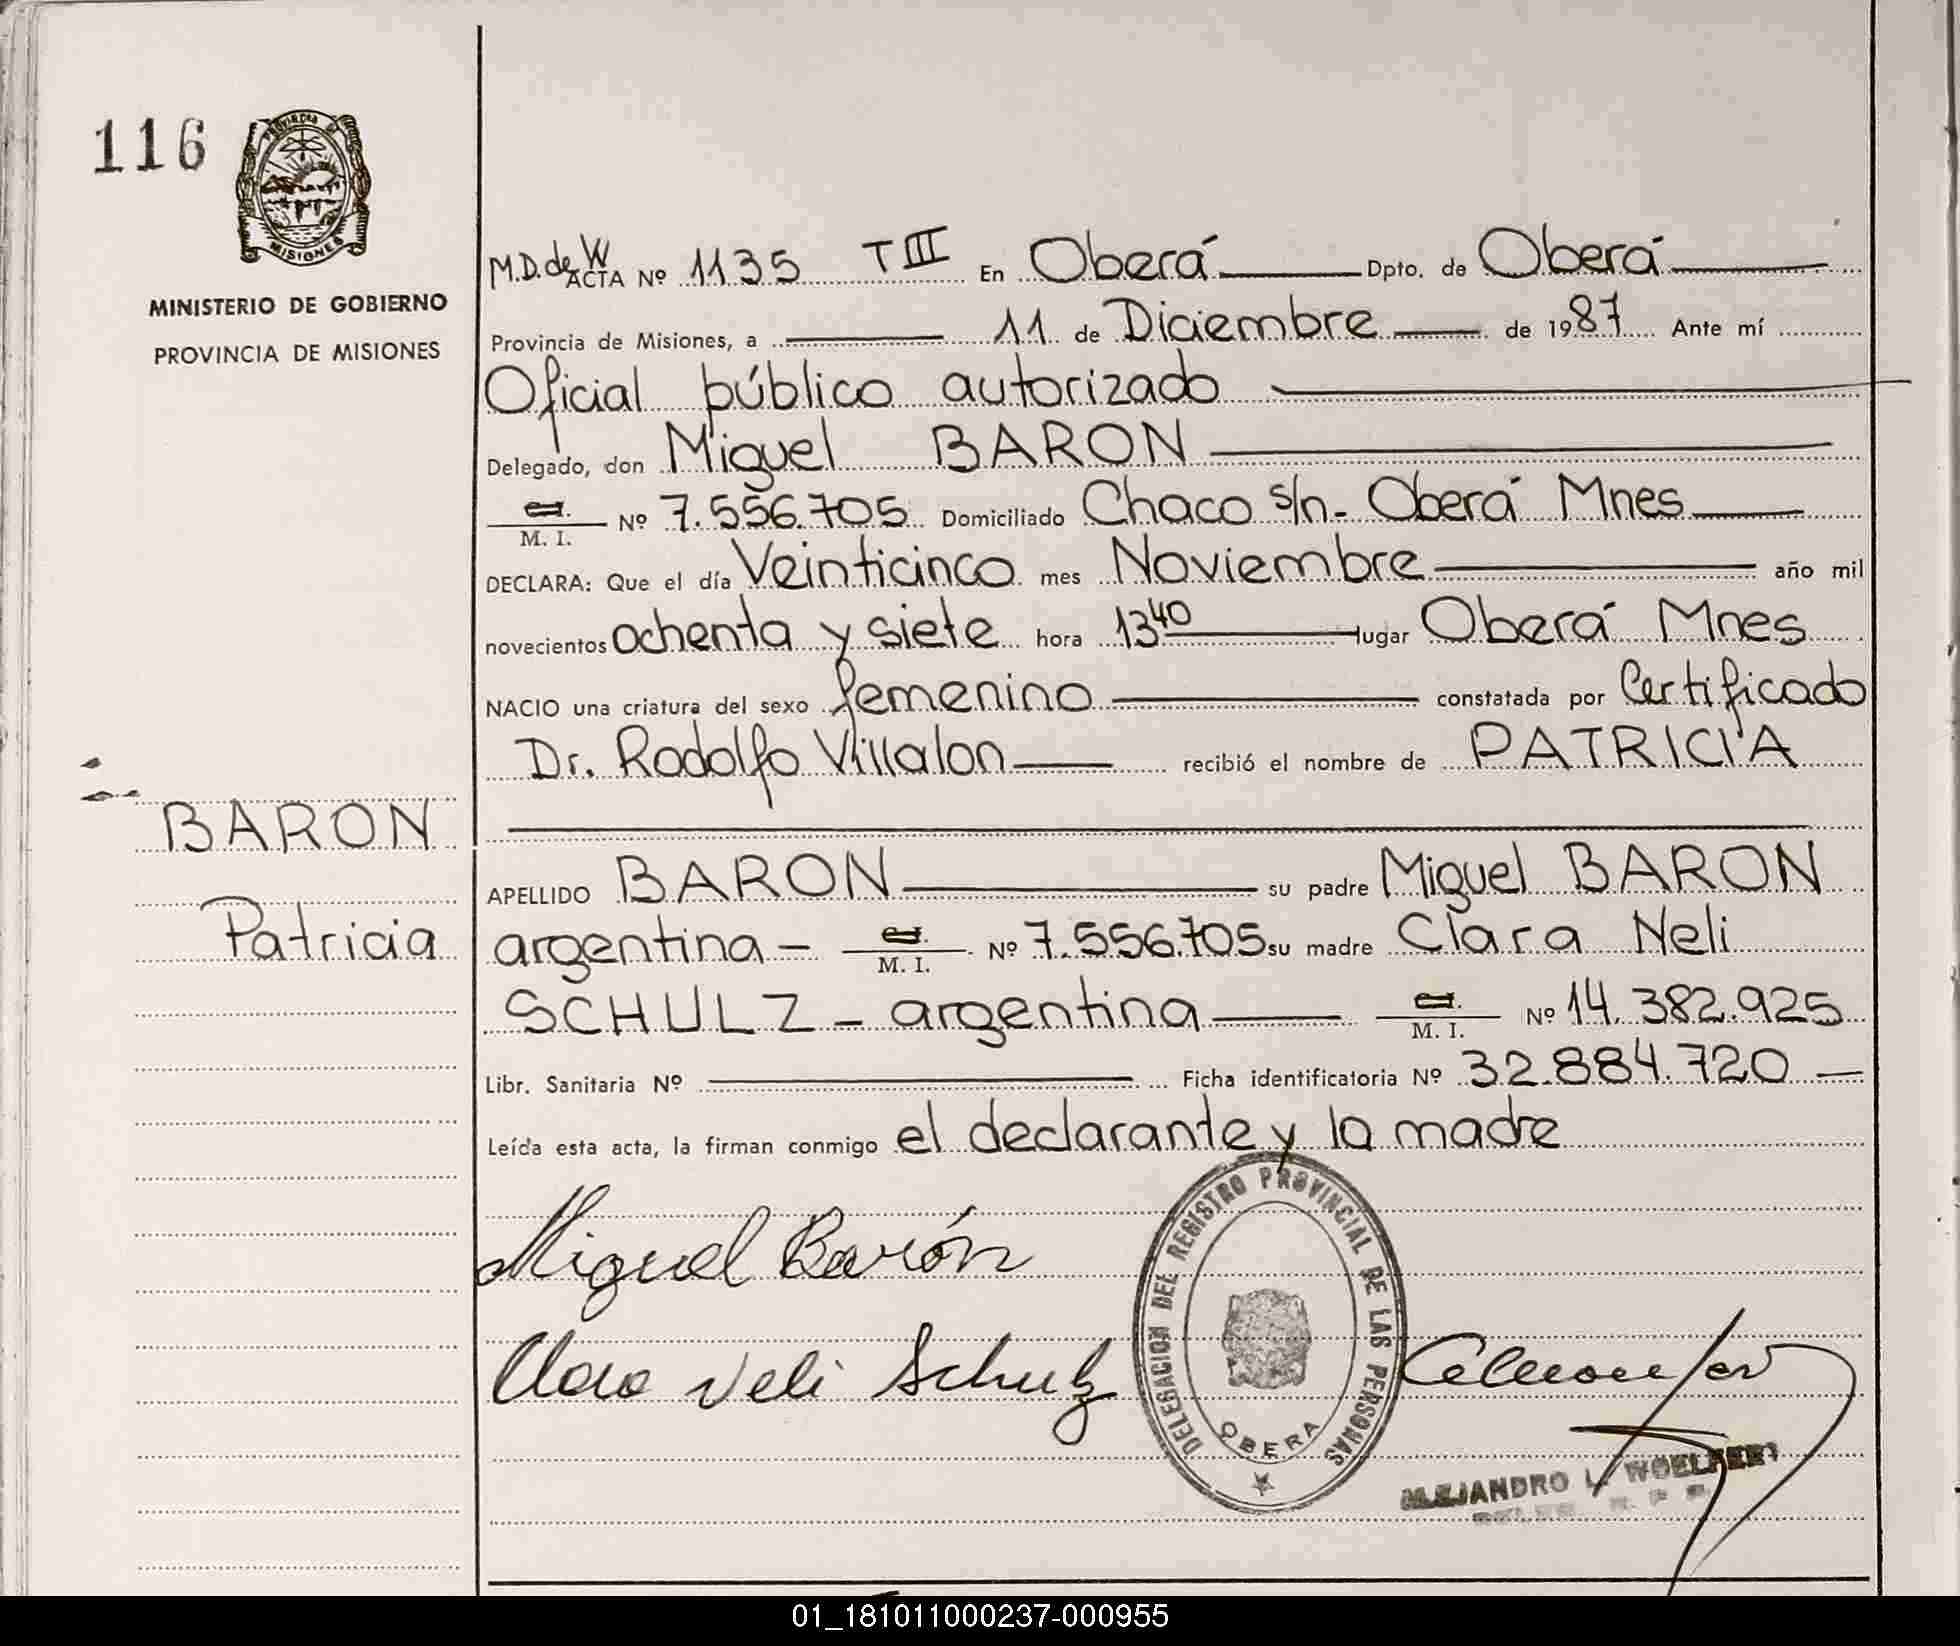 116
PROVINCIA DE
MISIONES
MINISTERIO DE GOBIERNO
PROVINCIA DE MISIONES
M.D. de W ACTA Nº 1135 T III En Oberá Dpto. de Oberá
Provincia de Misiones, a 11 de Diciembre de 1987 Ante mí
Oficial público autorizado
Delegado, don Miguel BARON
M. I. Nº 7.556.705 Domiciliado Chaco s/n - Oberá Mnes
DECLARA: Que el día Veinticinco mes Noviembre año mil
novecientos ochenta y siete hora 13 40 lugar Oberá Mnes
NACIO una criatura del sexo femenino constatada por Certificado
Dr. Rodolfo Villalon recibió el nombre de PATRICIA
BARON
APELLIDO BARON su padre Miguel BARON
Patricia
argentina - M. I. Nº 7.556.705 su madre Clara Neli
SCHULZ - argentina M. I. Nº 14.382.925
Libr. Sanitaria Nº Ficha identificatoria Nº 32.884.720 -
Leída esta acta, la firman conmigo el declarante y la madre
Miguel Barón
Clara Neli Schulz
DELEGACION DEL REGISTRO PROVINCIAL DE LAS PERSONAS
OBERA
ALEJANDRO L. WOELFERT
01_181011000237-000955